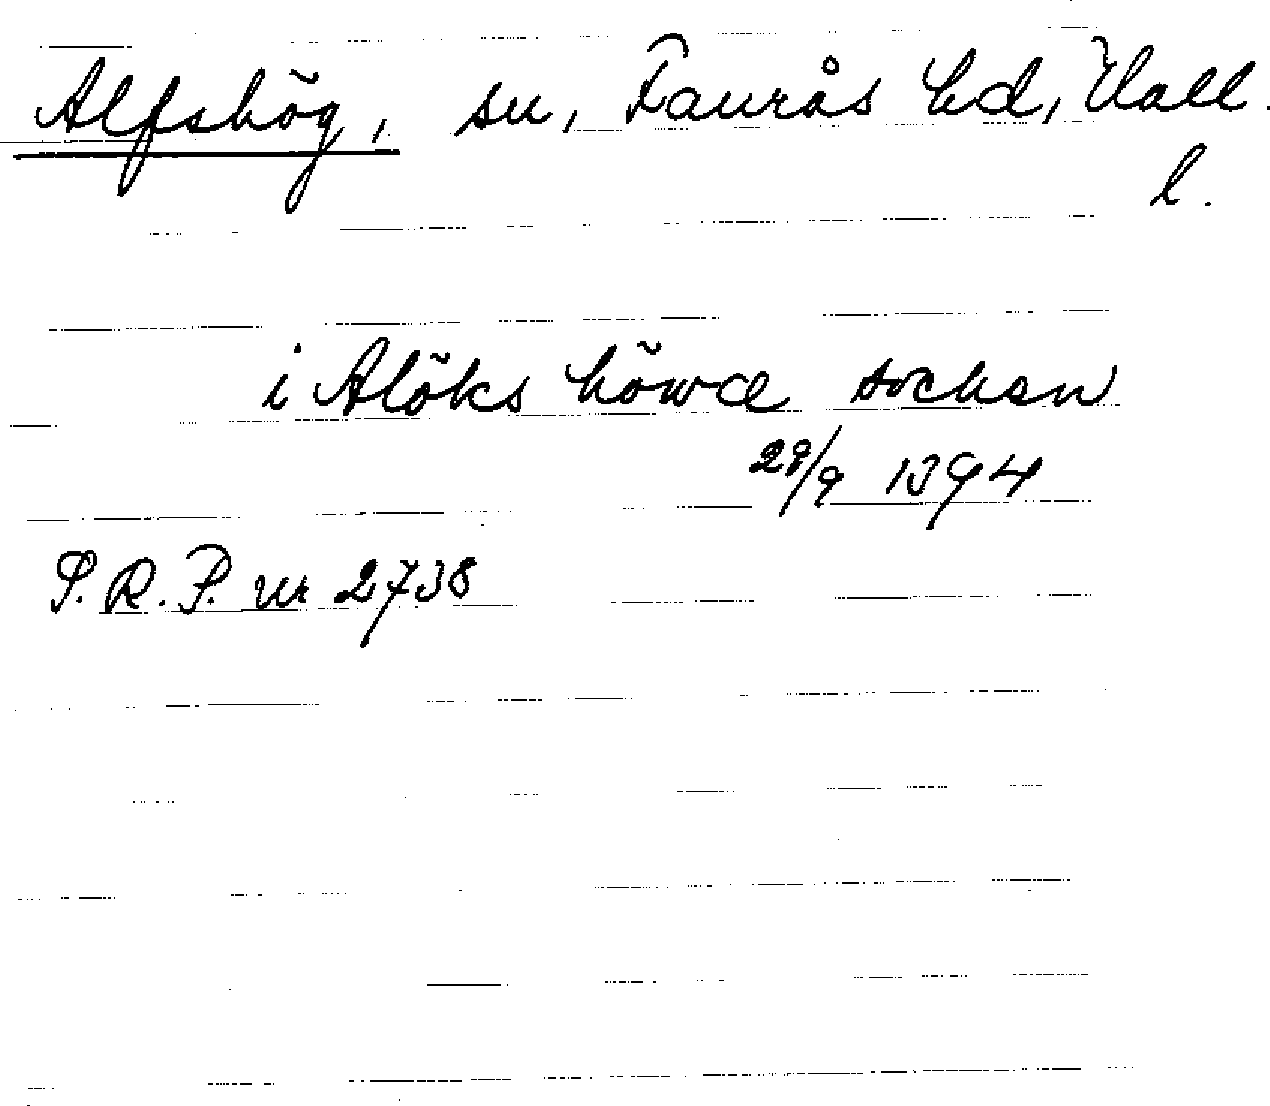 Alfshög, sn, Faurås hd, Hall.
l.
i Alöks höwæ sochan
29/9 1394
S.R.P. nr 2738